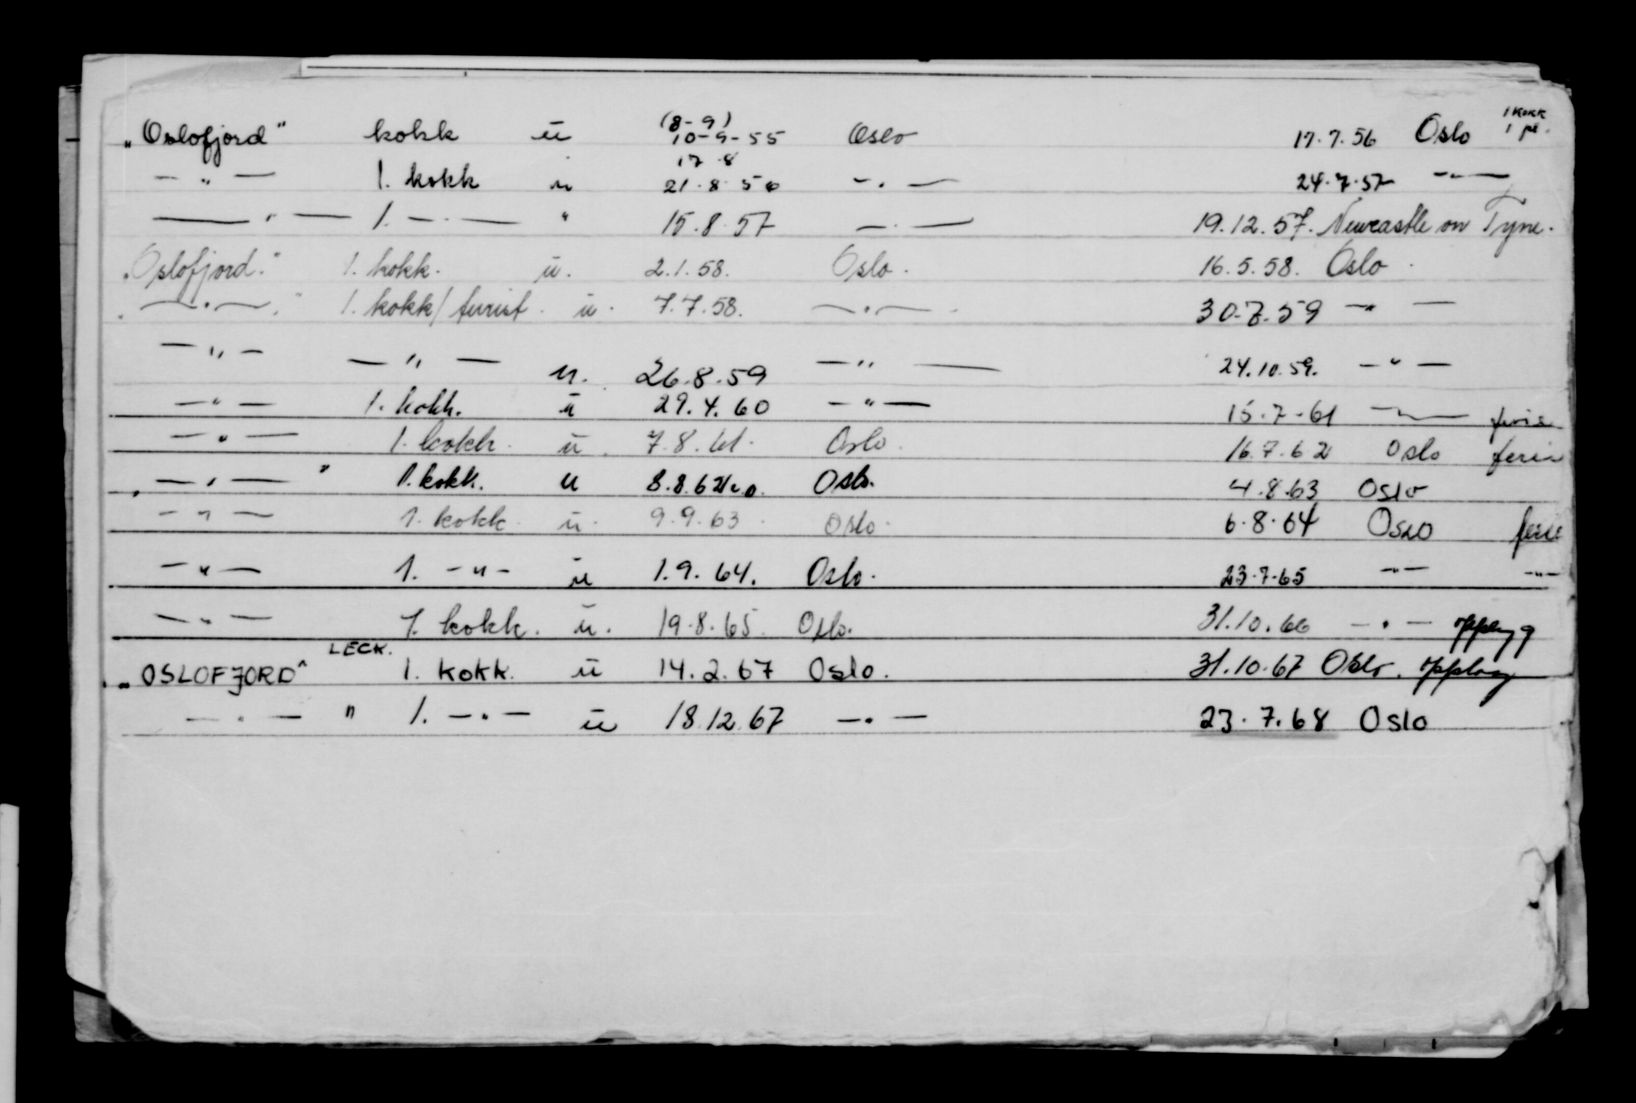 (8-9) 1 kokk
„Oslofjord" kokk ü 10-9-55 Oslo 17.7.56 Oslo 1 pl.
17.8
— " — 1. kokk ü 21.8.56 — . — 24.7.57 — " —
— " — 1. — . — " 15.8.57 — . — 19.12.57. Newcastle on Tyne.
„Oslofjord." 1. kokk. ü. 2.1.58. Oslo. 16.5.58. Oslo.
— . — " 1. kokk/turist. ü. 7.7.58. — . — 30.7.59 — " —
— " — — " — u. 26.8.59 — " — 24.10.59. — " —
— " — 1. kokk. ü 29.4.60 — " — 15.7-61 — " — ferie
— " — 1. kokk. ü. 7.8.61. Oslo. 16.7.62 Oslo ferie
„ — . — " 1. kokk. u 8.8.62 Oslo. 4.8.63 Oslo
— " — 1. kokk. ü. 9.9.63. Oslo. 6.8.64 Oslo ferie
— " — 1. — " — ü 1.9.64. Oslo. 23.7.65 — " — — " —
— " — 1. kokk. ü. 19.8.65. Oslo. 31.10.66 — . — opplag
LECK.
„OSLOFJORD" 1. kokk. ü 14.2.67 Oslo. 31.10.67 Oslo. opplag
— . — " 1. — . — ü 18.12.67 — . — 23.7.68 Oslo